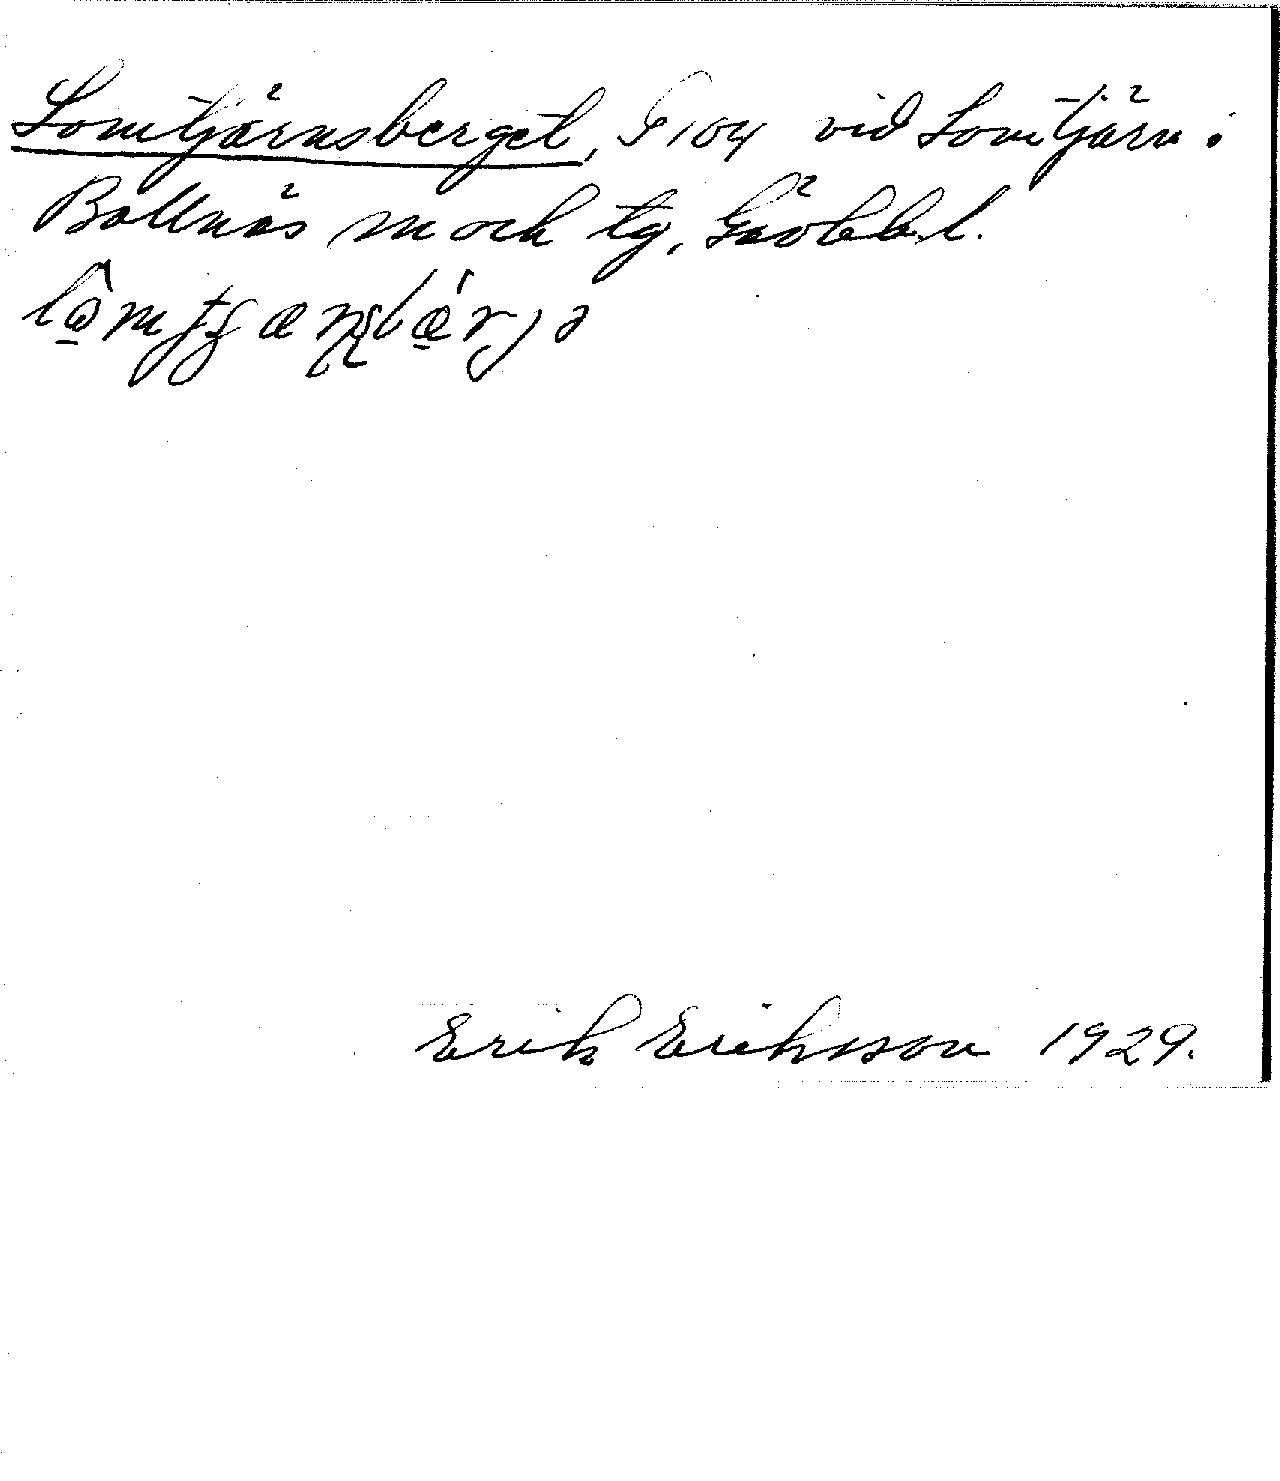 Lomtjärnsberget, G 104 vid Lomtjärn i
Bollnäs sn och tg, Gävlebl.
Erik Eriksson 1929.